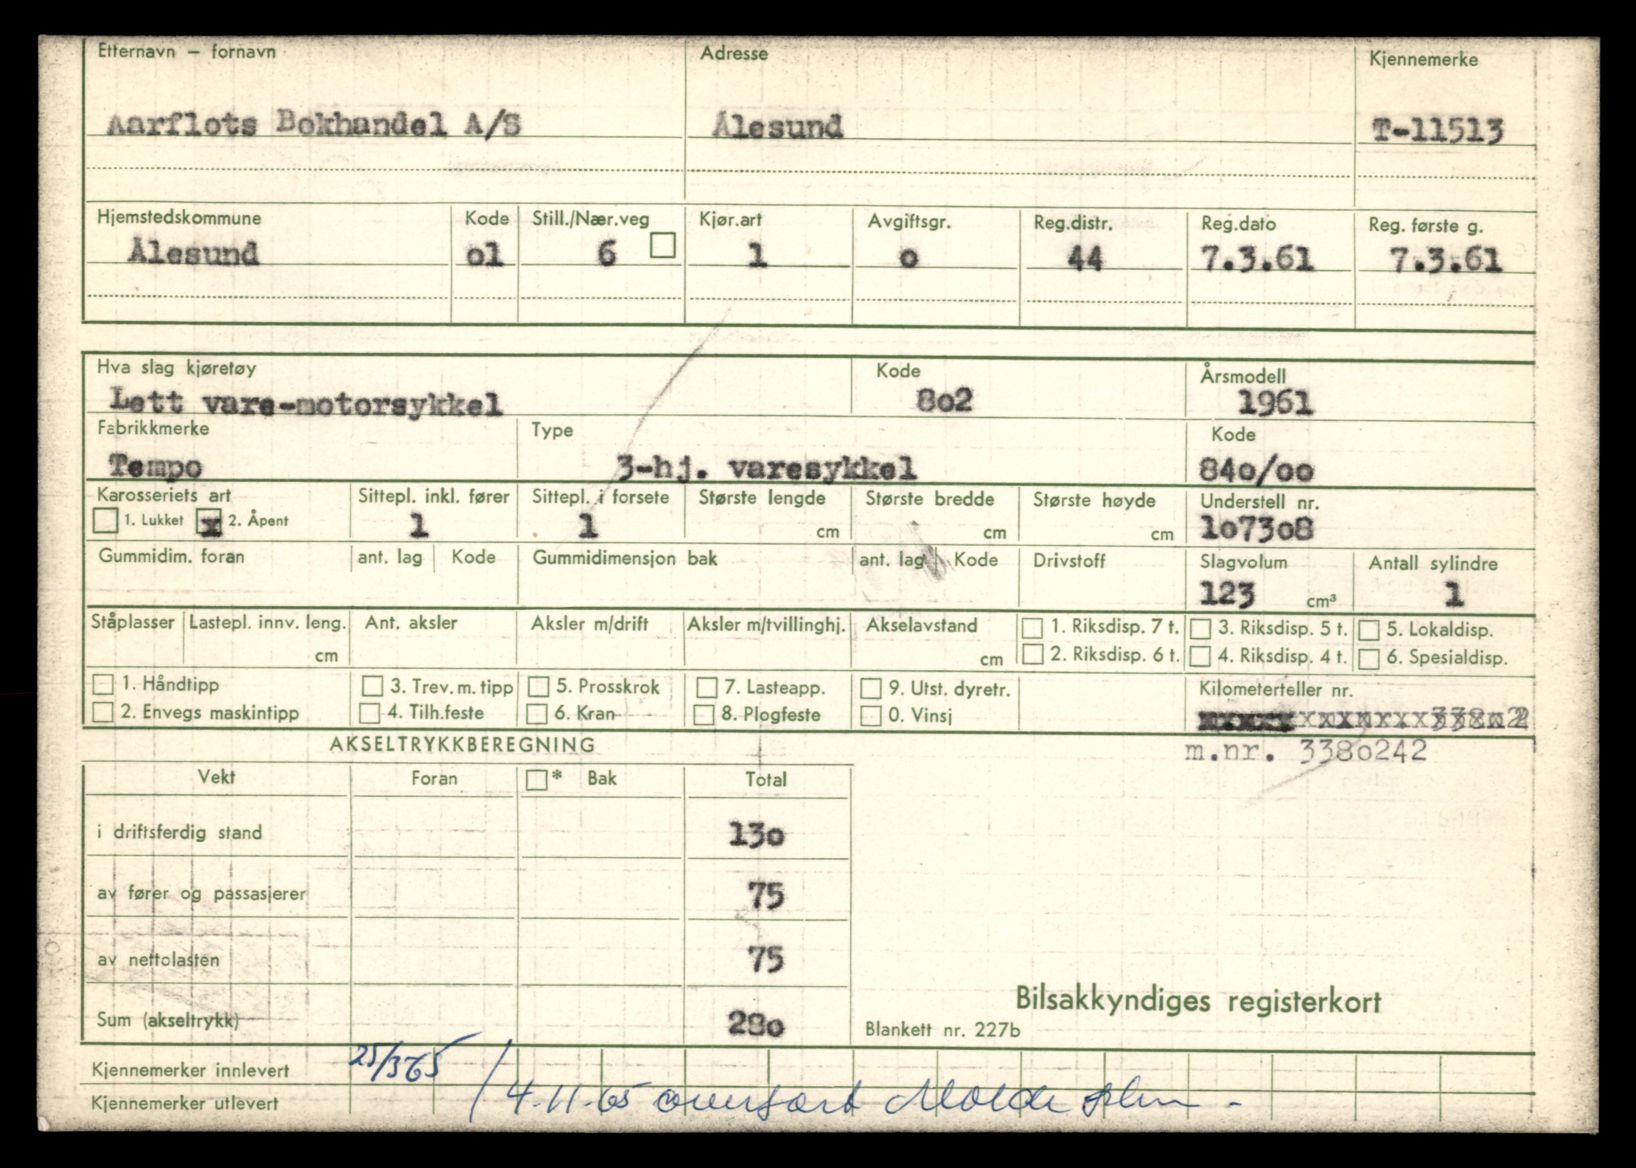 Etternavn – fornavn Adresse Kjennemerke
Aarflots Bokhandel A/S Ålesund T-11513
Hjemstedskommune Kode Still./Nær.veg Kjør.art Avgiftsgr. Reg.distr. Reg.dato Reg. første g.
Ålesund o1 6 1 o 44 7.3.61 7.3.61
Hva slag kjøretøy Kode Årsmodell
Lett vare-motorsykkel 8o2 1961
Fabrikkmerke Type Kode
Tempo 3-hj. varesykkel 84o/oo
Karosseriets art Sittepl. inkl. fører Sittepl. i forsete Største lengde Største bredde Største høyde Understell nr.
1. Lukket x 2. Åpent 1 1 cm cm cm 1o73o8
Gummidim. foran ant. lag Kode Gummidimensjon bak ant. lag Kode Drivstoff Slagvolum Antall sylindre
123 cm³ 1
Ståplasser Lastepl. innv. leng. Ant. aksler Aksler m/drift Aksler m/tvillinghj. Akselavstand 1. Riksdisp. 7 t. 3. Riksdisp. 5 t. 5. Lokaldisp.
cm cm 2. Riksdisp. 6 t. 4. Riksdisp. 4 t. 6. Spesialdisp.
1. Håndtipp 3. Trev. m. tipp 5. Prosskrok 7. Lasteapp. 9. Utst. dyretr. Kilometerteller nr.
2. Envegs maskintipp 4. Tilh.feste 6. Kran 8. Plogfeste 0. Vinsj
AKSELTRYKKBEREGNING m.nr. 338o242
Vekt Foran * Bak Total
i driftsferdig stand 13o
av fører og passasjerer 75
av nettolasten 75
Sum (akseltrykk) 28o
Bilsakkyndiges registerkort
Blankett nr. 227b
Kjennemerker innlevert 25/365
Kjennemerker utlevert 4.11.65 overført Molde